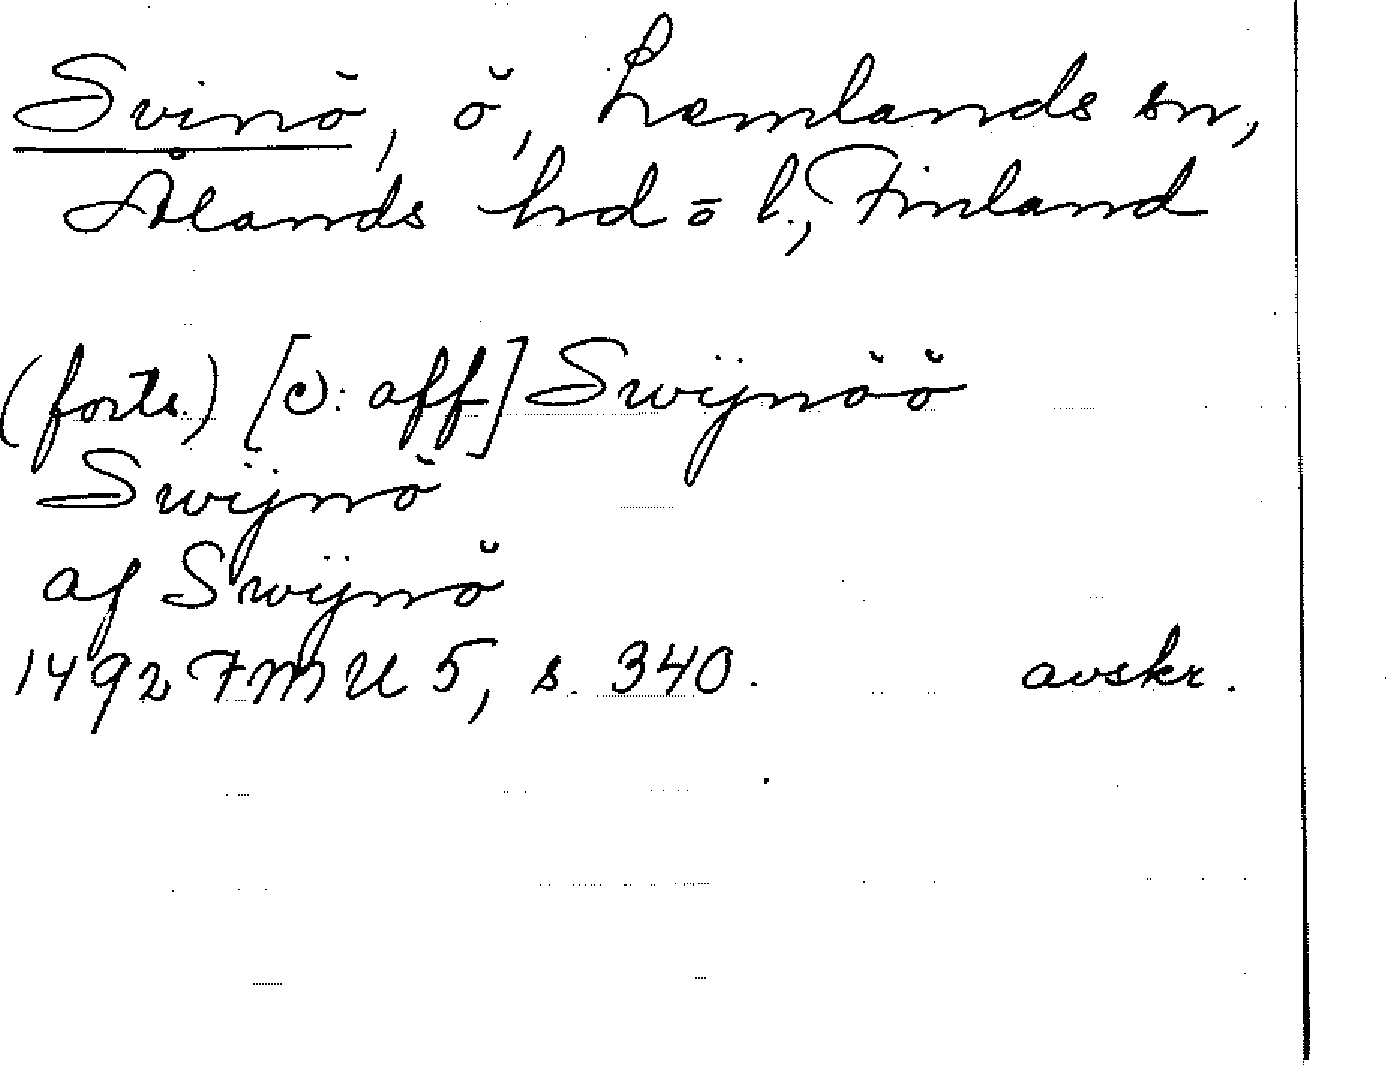 Svinö, ö, Lemlands sn,
Ålands hd o l., Finland
(forts.) [ɔ: aff] Swijnöö
Swijnö
af Swijnö
1492 FMU 5, s. 340. avskr.